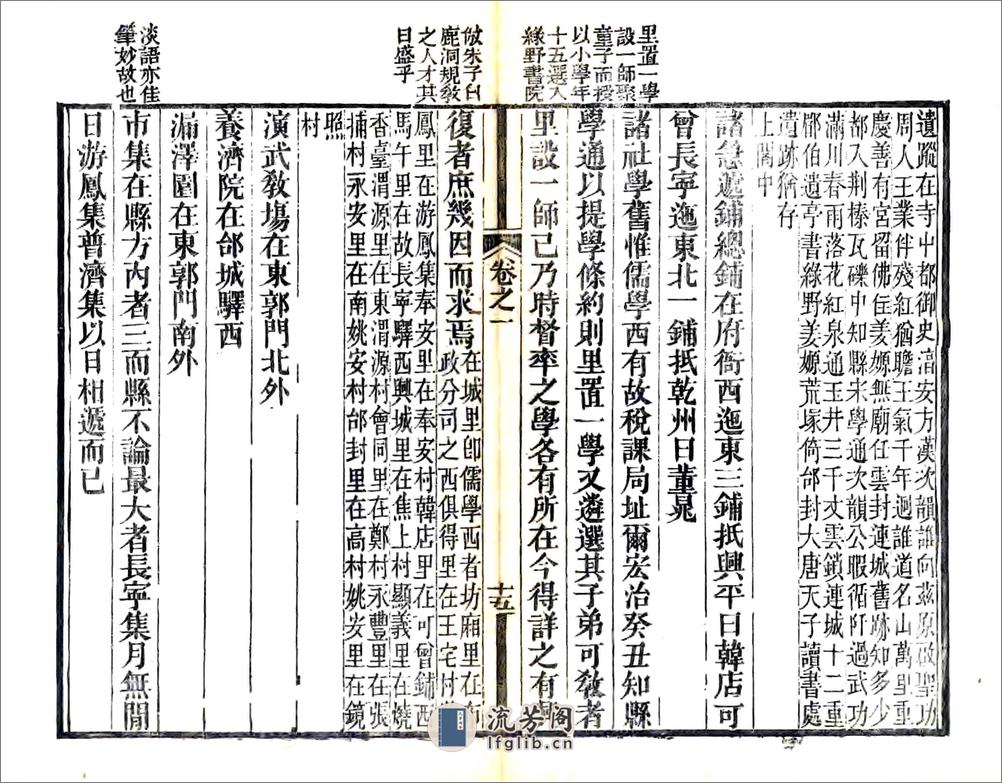 里置一學
設一師聚
童子而授
以小學年
十五選入
綠野書院
倣朱子白
鹿洞規敎
之人才其
日盛乎
淡語亦佳
筆妙故也
遺蹤在寺中都御史涪安方漢次韻誰向茲原啟聖功
周人王業伴殘紅猶瞻王氣千年迥誰道名山萬里重
慶善有宮留佛住姜嫄無廟任雲封連城舊跡知多少
都入荆榛瓦礫中知縣宋學通次韻公暇循阡過武功
滿川春雨落花紅泉通玉井三千丈雲鎖連城十二重
郿伯遺亭書綠野姜嫄荒塚倚邰封大唐天子讀書處
遺跡猶存
上閣中
諸急遞鋪總鋪在府衙西迤東三鋪抵興平曰韓店可
曾長寧迤東北一鋪抵乾州曰董晃
諸社學舊惟儒學西有故稅課局址爾宏治癸丑知縣
學通以提學條約則里置一學又遴選其子弟可敎者
里設一師已乃時督率之學各有所在今得詳之有
卷之一
十五
復者庶幾因而求焉在城里即儒學西者坊廂里在布
政分司之西俱得里在王宅村
鳳里在游鳳集奉安里在奉安村韓店里在可曾鋪西
馬午里在故長寧驛西興城里在焦上村顯義里在燒
香臺渭源里在東渭源村會同里在鄭村永豐里在張
捕村永安里在南姚安村邰封里在高村姚安里在鏡
照
村
演武敎場在東郭門北外
養濟院在邰城驛西
漏澤園在東郭門南外
市集在縣方內者三而縣不論最大者長寧集月無閒
日游鳳集普濟集以日相遞而已
流芳阁
lfglib.cn